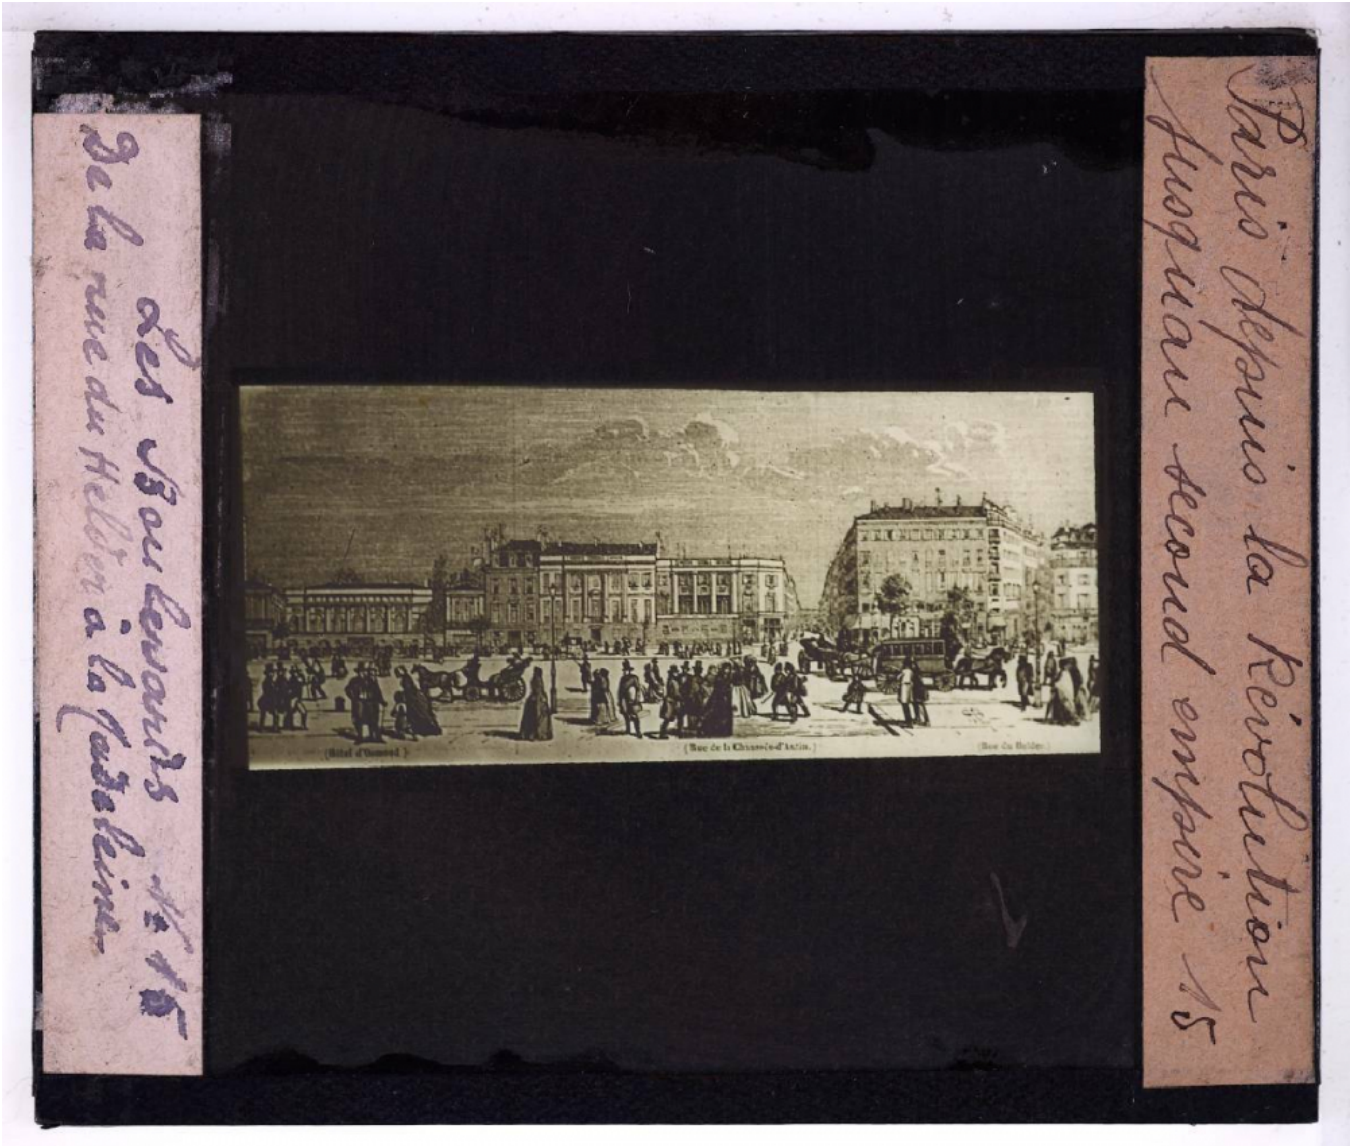 Les Boulevards No 15
De la rue du Helder à la Madeleine
(Hôtel d'Osmond.)
(Rue de la Chaussée-d'Antin.)
(Rue du Helder.)
Paris depuis la Révolution
jusqu'au second empire 15